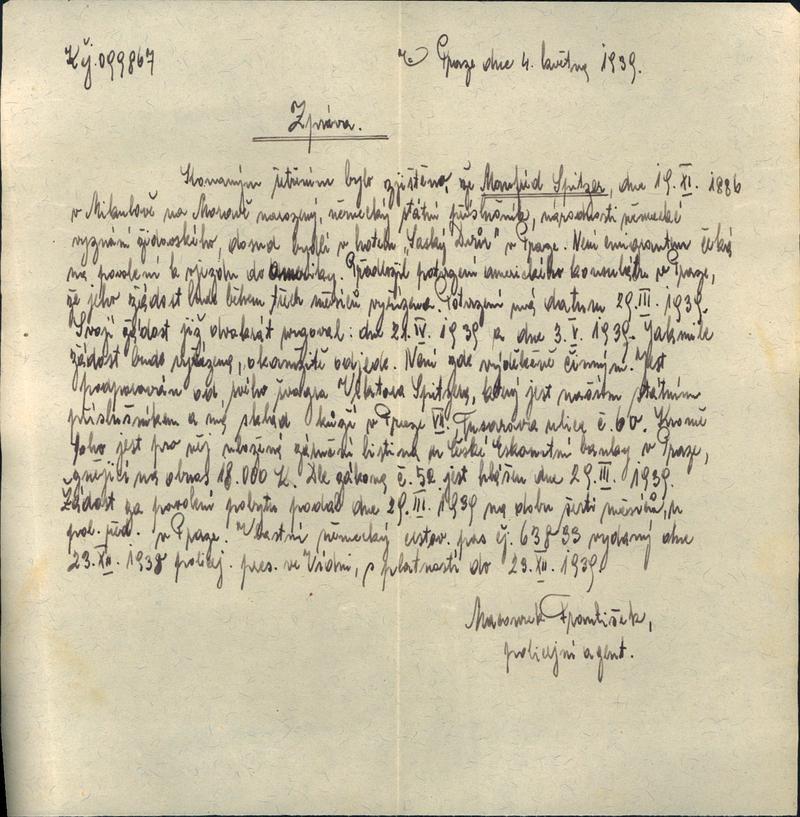 K čj. 099867
V Praze dne 4. května 1939.
Zpráva.
Konaným šetřením bylo zjištěno, že Manfréd Spitzer, dne 19. XI. 1886
v Mikulově na Moravě narozený, německý státní příslušník, národnosti německé
vyznání židovského, domd bydlí v hotelu „Saský Dvůr" v Praze. Není emigrantem čeká
na povolení k vjezdu do Ameriky. Předložil potvrzení amerického konsulátu v Praze,
že jeho žádost bude během třech měsíců vyřízena. Potvrzení má datum 29. III. 1939.
Svoji žádost již dvakrát urgoval: dne 21. IV. 1939 a dne 3. V. 1939. Jakmile
žádost bude vyřízena, okamžitě odjede. Není zde výdělečně činným. Jest
podporován od svého švagra Viktora Spitzera, který jest naším státním
příslušníkem a má sklad kůží v Praze VII. Tusarova ulice č. 60. Kromě
toho jest pro něj uložená záruční listina u České Eskomtní banky v Praze,
znějící na obnos 18.000 K. Dle zákona č. 52 jest hlášen dne 29. III. 1939.
Žádost za povolení pobytu podal dne 29. III. 1939 na dobu šesti měsíců, u
pol. řed. v Praze. Vlastní německý cestov. pas čj. 63833 vydaný dne
23. XII. 1938 policej. pres. ve Vídni, s platností do 23. XII. 1939.
František,
policejní agent.